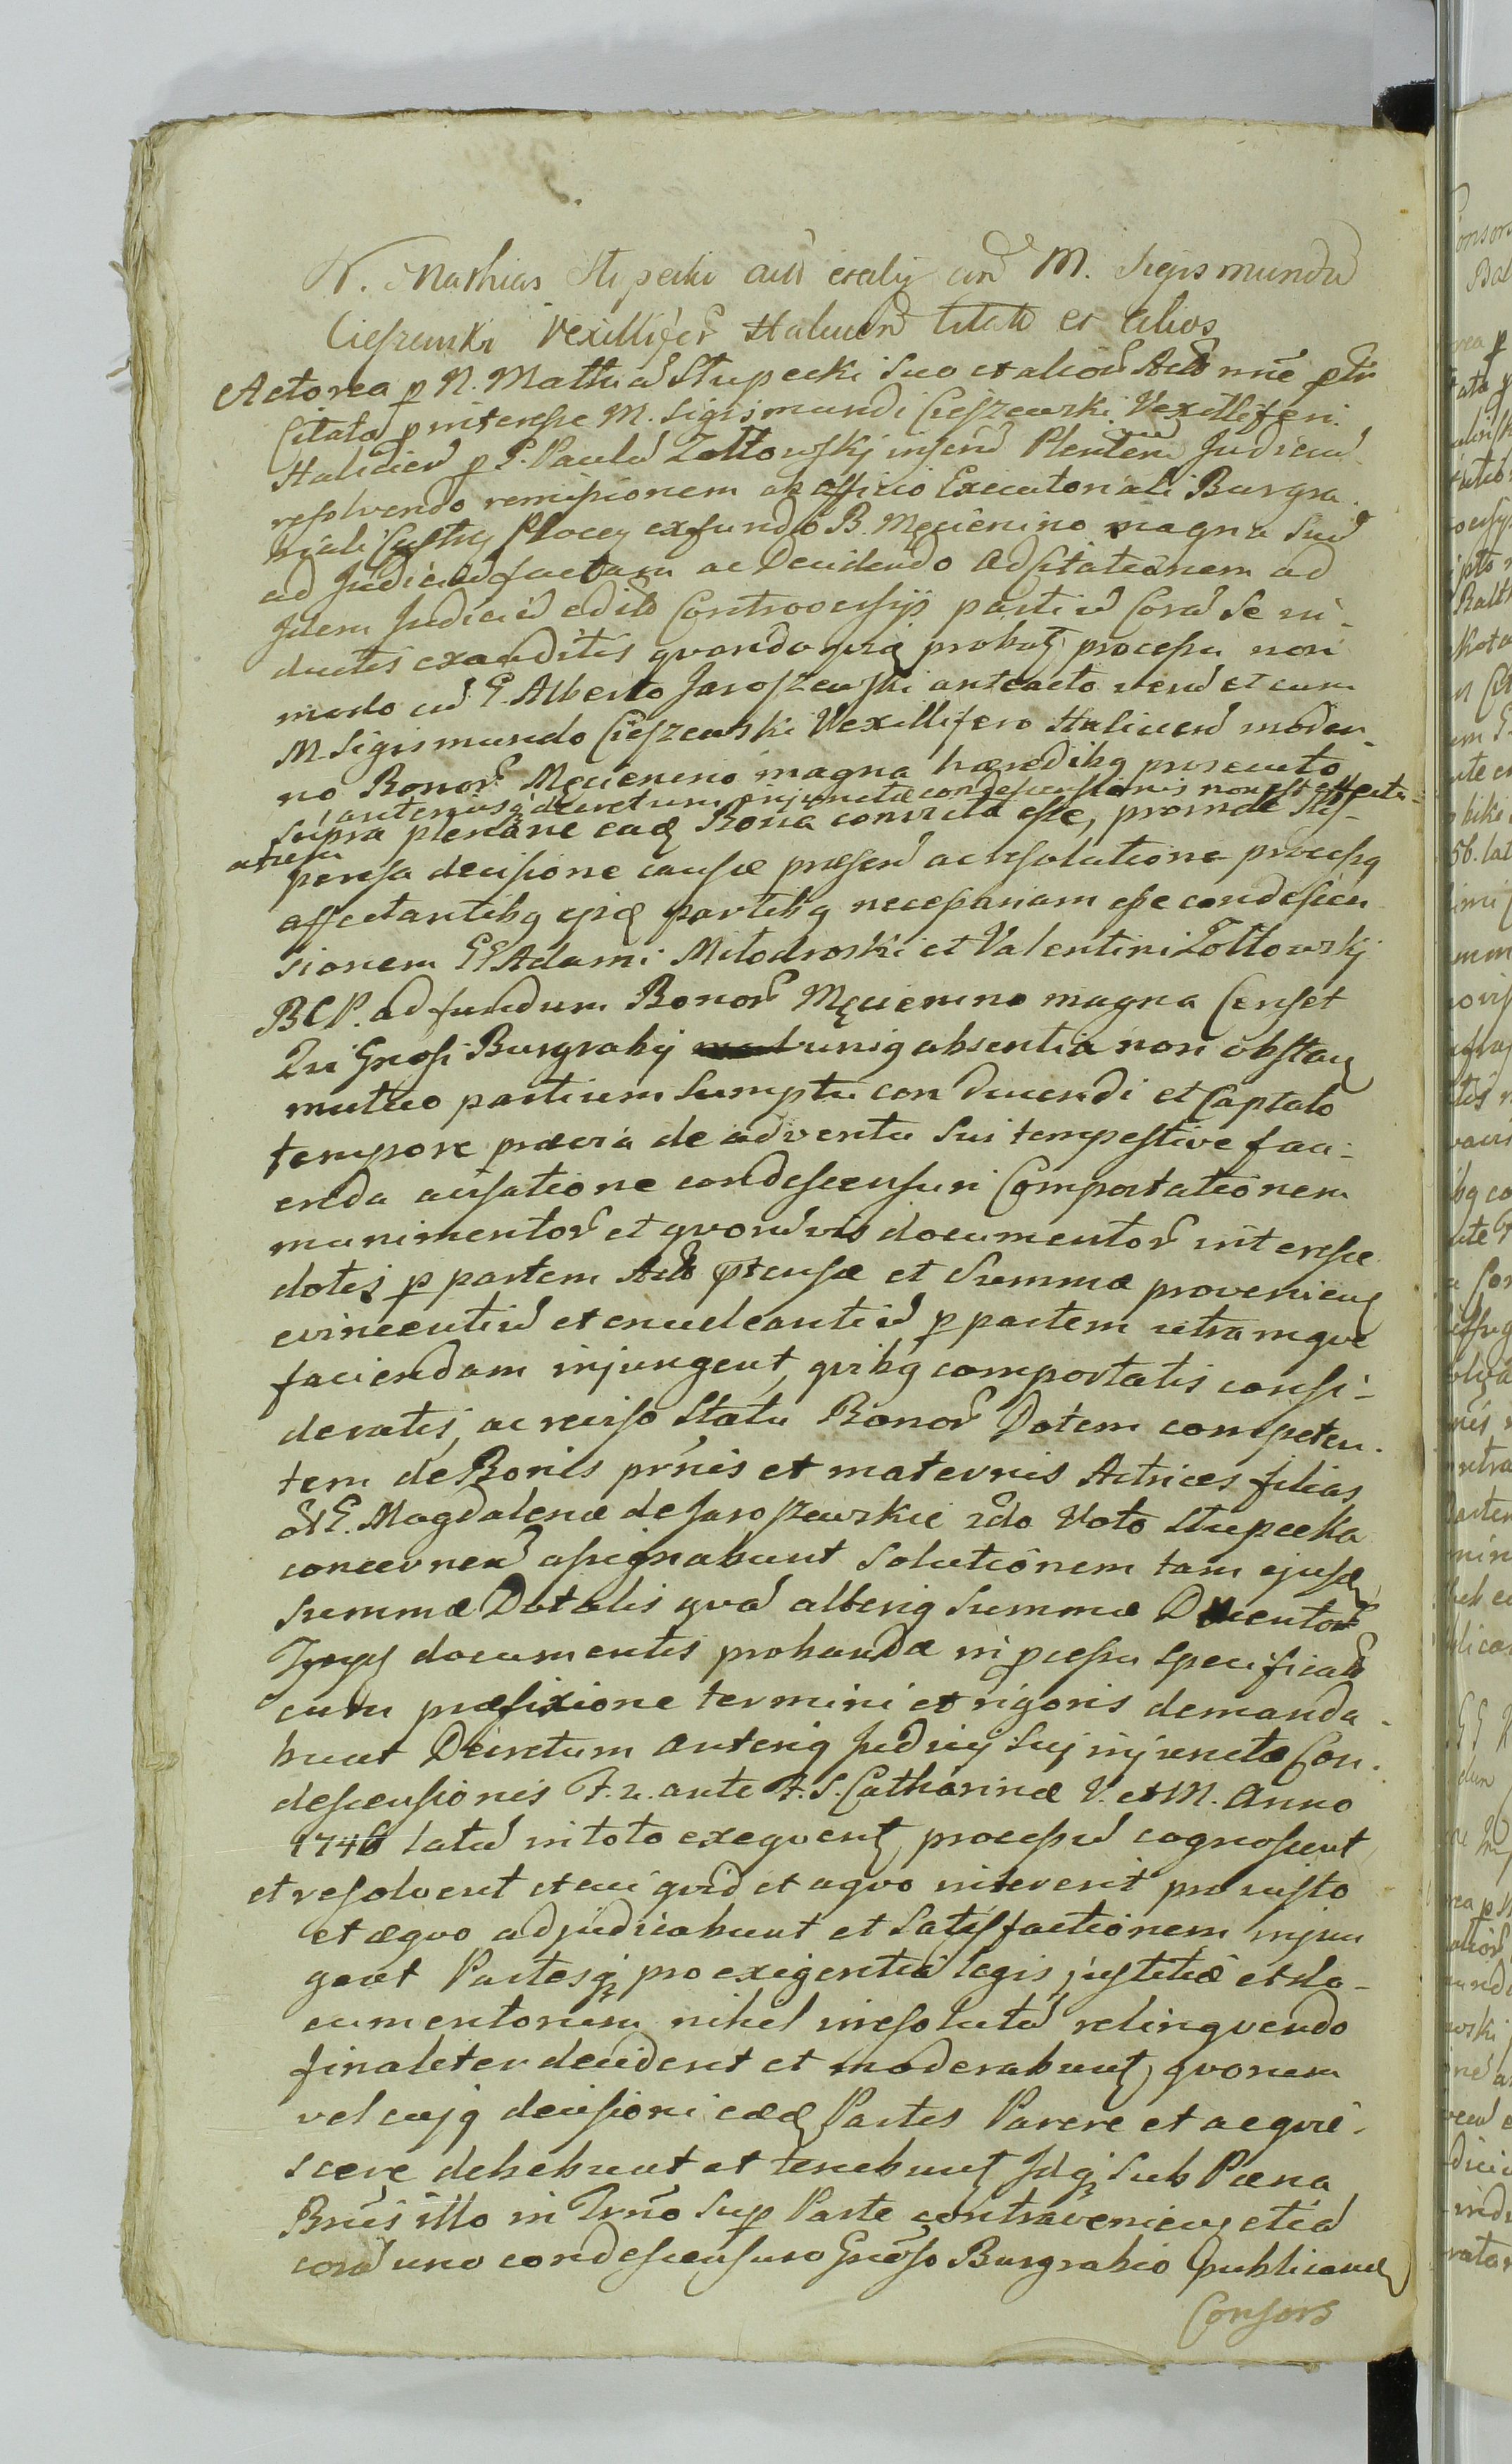 N. Mathias Stupecki aliij M. Sigismundū
Cieszewski Vexilliferū Halicień Citatū et alios
Actorea p N. Mathiā Stupecki suo et alior̃ Act nñe
Citata p M. Sigismundi Cieszewski Vexilliferi
Halicień p G. Paulū Zołtowskj Plenteñ Judiciū
resolvendo remissionem ab officio Executoriali Burgra
biali Castry Plocen ex fundo B. Męcienino magna suū
ad Judiciū factam ac decidendo ad citationem ad
Idem Judiciū edito Controversijs partiū Corā se in-
ductis exauditis quando processu non
modo cū G. Alberto Jaroszewski anteacto verū et cum
M Sigismundo Cieszewski Vexillifero Halicień moder-
no Bonor̃ Męcienino magna hæredibq prosecuto
anteriusq decretum injunctæ condescensionis non est effectu-
supra plenane eadē Bona convicta esse, proinde sus-
atum
pensa decisione causæ præseñ ac resolutione processq
affectantibq ipsis partibq necessariam esse condescen
sionem GG Adami Miłodroski et Valentini Zołtowskj
BCP. ad fundum Bonor̃ Męcienino magna Censet
Qui Gñosi Burgrabij uniq absentia non obstan
mutuo partium sumptu conducendi et Captato
tempore prævia de adventu sui tempestive faci-
enda avisatione condescensuri Comportationem
munimentor̃ et quorūvis documentor̃ interesse
dotis p partem Act ptensæ et summæ provenien
evincentiū et enucleantiū p partem utramque
faciendam injungent, quibq comportatis consi-
deratis, ac reviso statu Bonor̃ Dotem competen-
tem de Bonis pr̃nis et maternis Actrices filias
G. Magdalenæ de Jaroszewskie 2do Voto Stupecka
concerneñ assignabunt solutionem tam ejusdē
summæ Dotalis quā alteriq summæ Ducentor̃
documentis probandæ in pcessu specificatæ
cum præfixione termini et rigoris demanda-
bunt Decretum anteriq Judicij sui injunctæ Con-
descensionis F. 2. ante F. S. Catharinæ V. et M. Anno
1746 latū in toto exequent, processū cognoscent
et resolvent et cui quid et a quo intererit pro justo
et æquo adjudicabunt et satisfactionem injun
gent Partesq pro exigentia legis, justitiæ et do-
cumentorum nihil irresolutū relinquendo
finaliter decident et moderabunt, quorum
vel cujq decisioni eædē Partes Parere et acquie-
scere debebunt et tenebunt Idq sub Pæna
Bñis illo in Trño sup Parte contravenien etiā
corā uno condescensuro Gñoso Burgrabio publicand
Consors